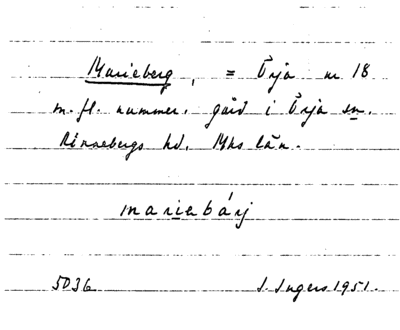 Marieberg, = Örja nr 18
m.fl. nummer. gård i Örja sn.
Rönnebergs hd. Mhs län.
mariebárj
5036 I. Ingers 1951.